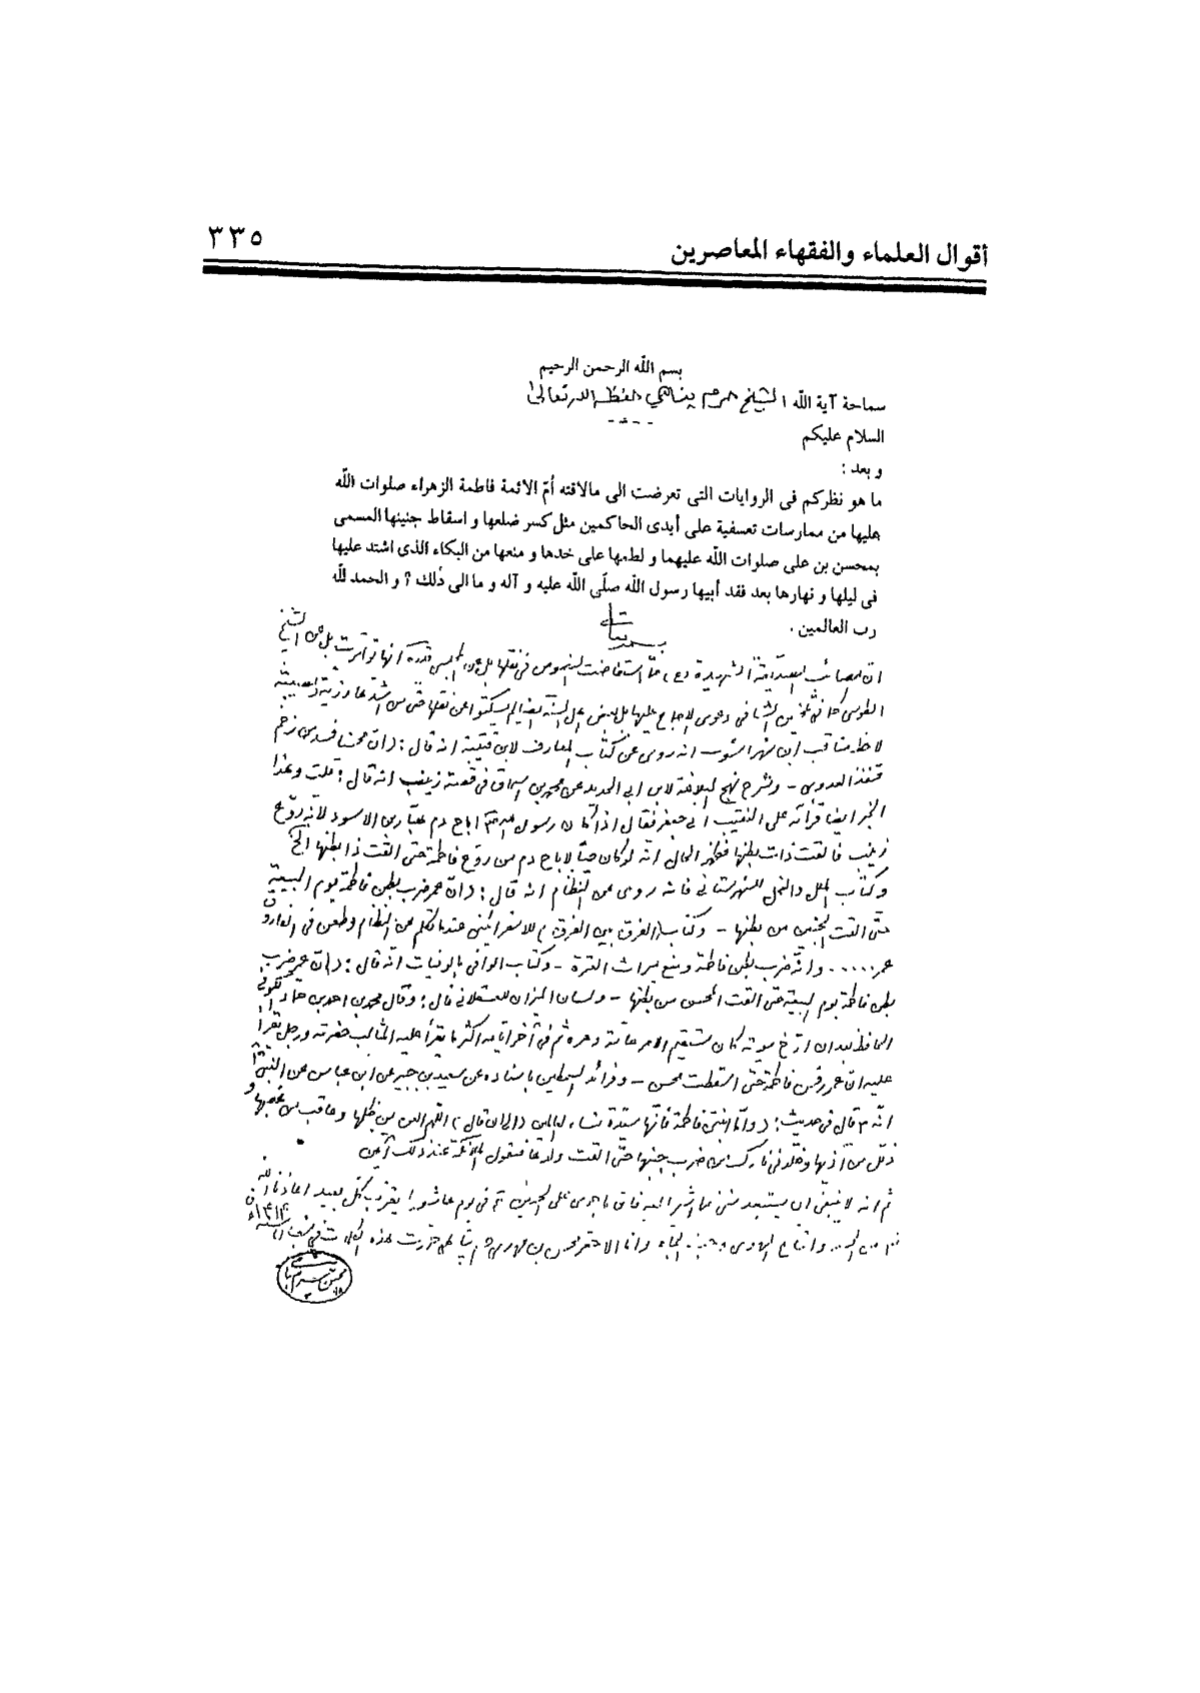 أقوال العلماء والفقهاء المعاصرين
٣٣٥
بسم الله الرحمن الرحيم
سماحة آية الله الشيخ حرم پناهي حفظه الله تعالى
السلام عليكم
و بعد :
ما هو نظركم فى الروايات التى تعرضت الى مالاقته أمّ الائمة فاطمة الزهراء صلوات الله
عليها من ممارسات تعسفية على أيدى الحاكمين مثل كسر ضلعها و اسقاط جنينها المسمى
بمحسن بن على صلوات الله عليهما و لطمها على خدها و منعها من البكاء الذى اشتد عليها
فى ليلها و نهارها بعد فقد أبيها رسول الله صلّى الله عليه و آله و ما الى ذٰلك ؟ و الحمد للّه
رب العالمين .
بسمه تعالى
ان مصائب الصديقة الشهيدة (ع) مما استفاضت النصوص فى نقلها بل عن المجلسى قدره انها تواترت بل عن الشيخ
الطوسى كما فى تلخيص الشافى دعوى الاجماع عليها بل بعض اهل السنة ايضا لم يسكتوا عن نقلها
لاحظ مناقب ابن شهراشوب انه روى عن كتاب المعارف لابن قتيبة انه قال : (ان محسنا فسد من زخم
قنفذ العدوى - وشرح نهج البلاغة لابن ابى الحديد عن محمد بن اسحاق فى قصة زينب انه قال : قلت وهذا
الخبر ايضا قرأته على النقيب ابى جعفر فقال اذا كان رسول الله اباح دم هبار بن الاسود لأنه روّع
زينب فالقت ذات بطنها فظهر الحال انه لو كان حيا لاباح دم من روّع فاطمة حتى القت ذا بطنها الخ
وكتاب الملل والنحل للشهرستانى فانه روى عن النظام انه قال : (ان عمر ضرب بطن فاطمة يوم البيعة
حتى القت الجنين من بطنها - وكتاب (الفرق بين الفرق) للاسفرائينى عندما تكلم عن النظام وطعن فى الفاروق
عمر ..... وانه ضرب بطن فاطمة ومنع ميراث العترة - وكتاب الوافى بالوفيات انه قال : (ان عمر ضرب
بطن فاطمة يوم البيعة حتى القت المحسن من بطنها - ولسان الميزان للعسقلانى قال : وقال محمد بن احمد بن حماد الكوفى
الحافظ بعد ان ارّخ موته كان مستقيم الامر عامة دهره ثم فى آخر ايامه اكثر ما يقرأ عليه المثالب حضرته ورجل يقرأ
عليه ان عمر رفس فاطمة حتى اسقطت بمحسن - وفرائد السمطين باسناده عن سعيد بن جبير عن ابن عباس عن النبى
انه قال فى حديث : (واما ابنتى فاطمة فانها سيدة نساء العالمين (الى ان قال) اللهم العن من ظلمها وعاقب من غصبها و
ذلل من آذيها وخلد فى نارك من ضرب جنبها حتى القت ولدها فتقول الملائكة عند ذلك آمين
ثم انه لا ينبغى ان يستبعد شئ مما اشير اليه فان ما جرى على الحسين فى يوم عاشورا يقرب كل بعيد اعاذنا الله
واتباع الهوى وانا الاحقر محسن بن مهدى حررت هذه الكلمات فى